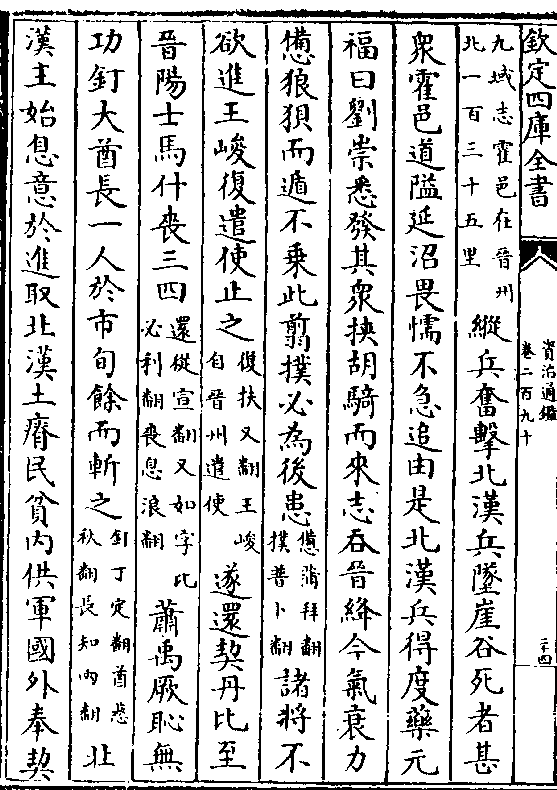 欽定四庫全書
資治通鑑
卷二百九十
二十四
九域志霍邑在晉州
北一百三十五里
縱兵奮擊北漢兵墜崖谷死者甚
眾霍邑道隘延沼畏懦不急追由是北漢兵得度藥元
福曰劉崇悉發其衆挾胡騎而來志吞晉絳今氣衰力
憊狼狽而遁不乗此翦撲必為後患
憊蒲拜翻
撲普卜翻
諸將不
欲進王峻復遣使止之
復扶又翻王峻
自晉州遣使
遂還契丹比至
晉陽士馬什喪三四
還從宣翻又如字比
必利翻喪息浪翻
蕭禹厥恥無
功釘大酋長一人於市旬餘而斬之
釘丁定翻酋慈
秋翻長知兩翻
北
漢主始息意於進取北漢土瘠民貧内供軍國外奉契